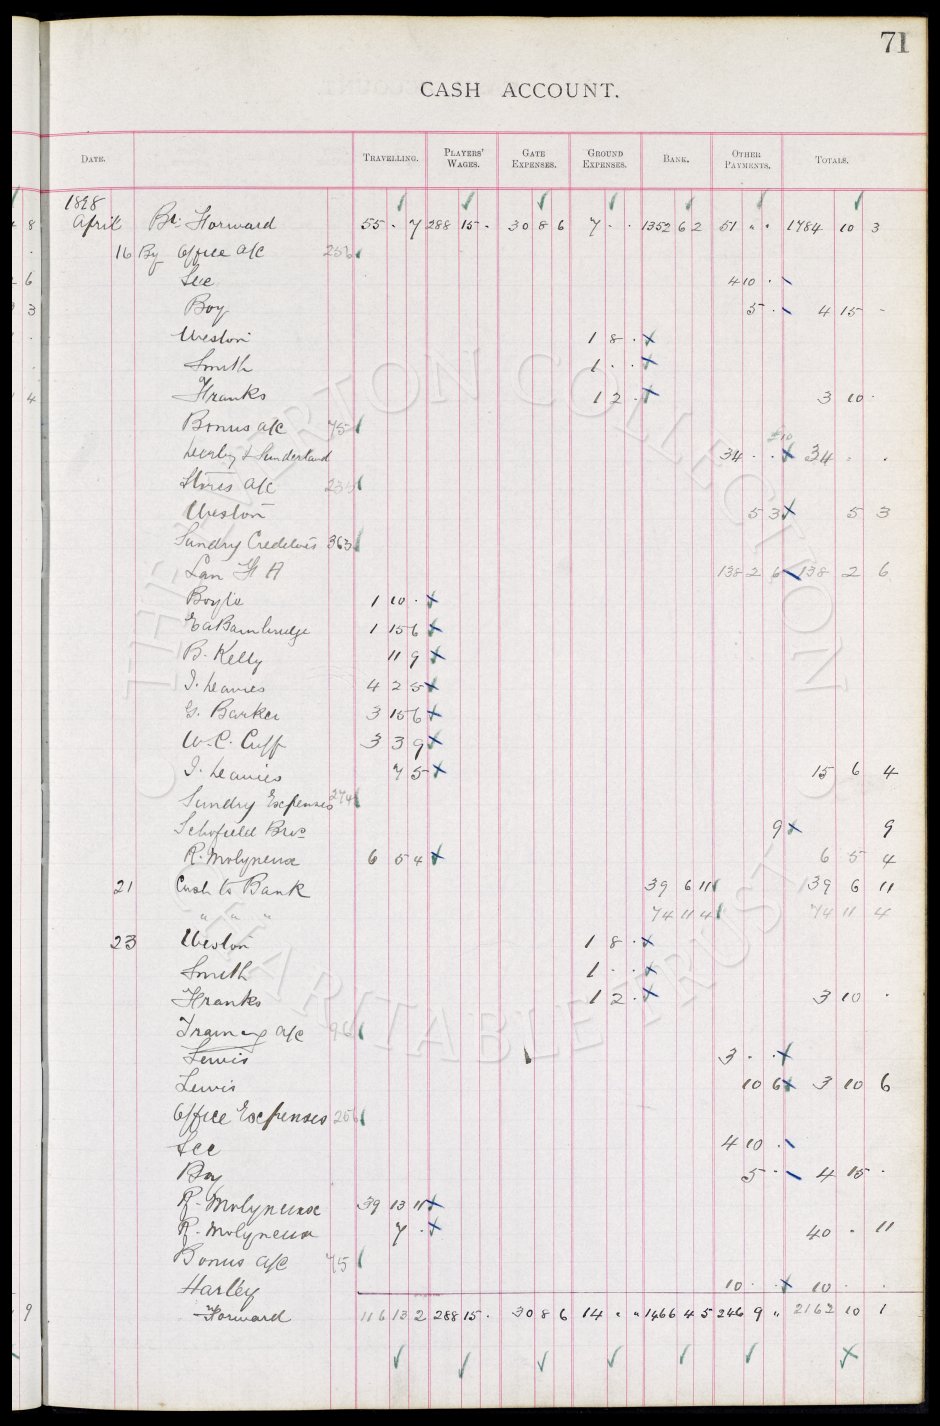 71
CASH ACCOUNT.
DATE. TRAVELLING. PLAYERS' WAGES. GATE EXPENSES. GROUND EXPENSES. BANK. OTHER PAYMENTS. TOTALS.
1898
April Bt. Forward 55 . 7 288 15 . 30 8 6 7 . . 1352 6 2 51 " " 1784 10 3
16 By Office a/c 256
Sec 4 10 .
Boy 5 . 4 15 -
Weston 1 8 .
Smith 1 . .
Franks 1 2 . 3 10 .
Bonus a/c 75
£10
Derby & Sunderland 34 . . 34 . .
Stores a/c
Weston 5 3 5 3
Sundry Creditors 363
Lan F A 138 2 6 138 2 6
Boyle 1 10 .
E A Bainbridge 1 15 6
B. Kelly 11 9
4 2 5
G. Barker 3 15 6
W. C. Cuff 3 3 9
7 5 15 6 4
Sundry Expenses 274
Schofield Bros 9 9
R. Molyneux 6 5 4 6 5 4
21 Cash to Bank 39 6 11 39 6 11
" " " 74 11 4 74 11 4
23 Weston 1 8 .
Smith 1 . .
Franks 1 2 . 3 10 .
Training a/c 96
Lewis 3 . .
Lewis 10 6 3 10 6
Office Expenses 256
Sec 4 10 .
Boy 5 . 4 15 .
R. Molyneux 39 13 11
R. Molyneux 7 . 40 . 11
Bonus a/c 75
Hartley 10 . . 10 . .
Forward 116 13 2 288 15 . 30 8 6 14 " " 1466 4 5 246 9 " 2162 10 1
THE EVERTON COLLECTION
CHARITABLE TRUST